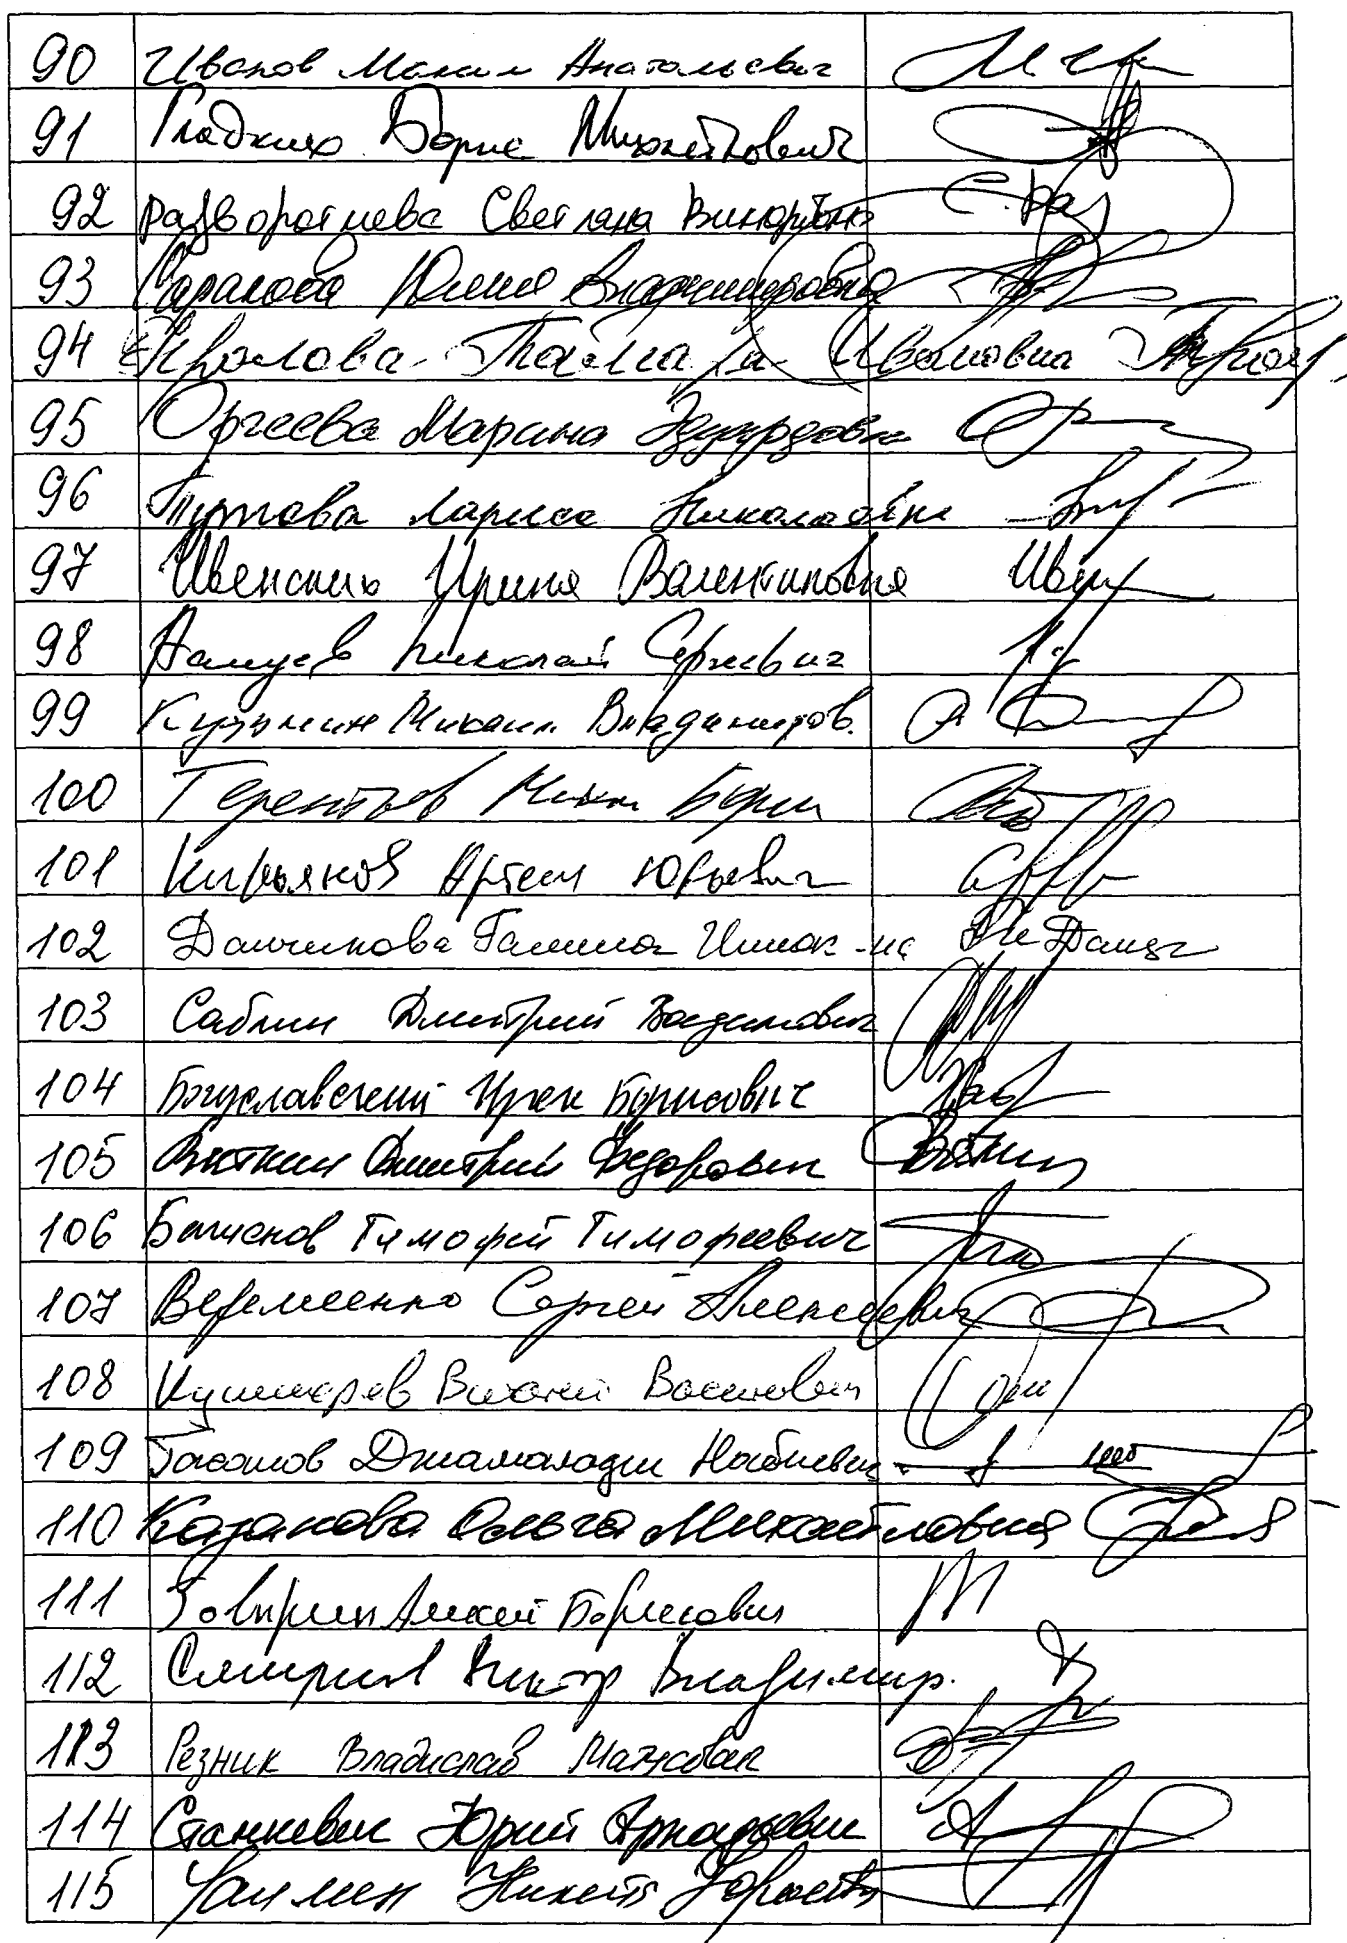 90 Иванов Максим Анатольевич
91 Гладких Борис Михайлович
92 Разворотнева Светлана Викторовна
93 Саранова Юлия Владимировна
94 Фролова Тамара Ивановна
95 Оргеева Марина Эдуардовна
96 Тутова Лариса Николаевна
97 Швенских Ирина Валентиновна
98 Николай Сергеевич
99 Кузьмин Михаил Владимиров.
100 Терентьев Михаил Борис
101 Кирьянов Артем Юрьевич
102 Данчикова Галина Иннок-на
103 Саблин Дмитрий Вадимович
104 Богуславский Ирек Борисович
105 Вяткин Дмитрий Федорович
106 Баженов Тимофей Тимофеевич
107 Веремеенко Сергей Алексеевич
108 Кушнарев Виталий Васильевич
109 Гасанов Джамаладин Набиевич
110 Казакова Ольга Михайловна
111 Алексей Борисович
112 Смирнов Виктор Владимир.
113 Резник Владислав Матусович
114 Станкевич Юрий Аркадьевич
115 Чаплин Никита Юрьевич